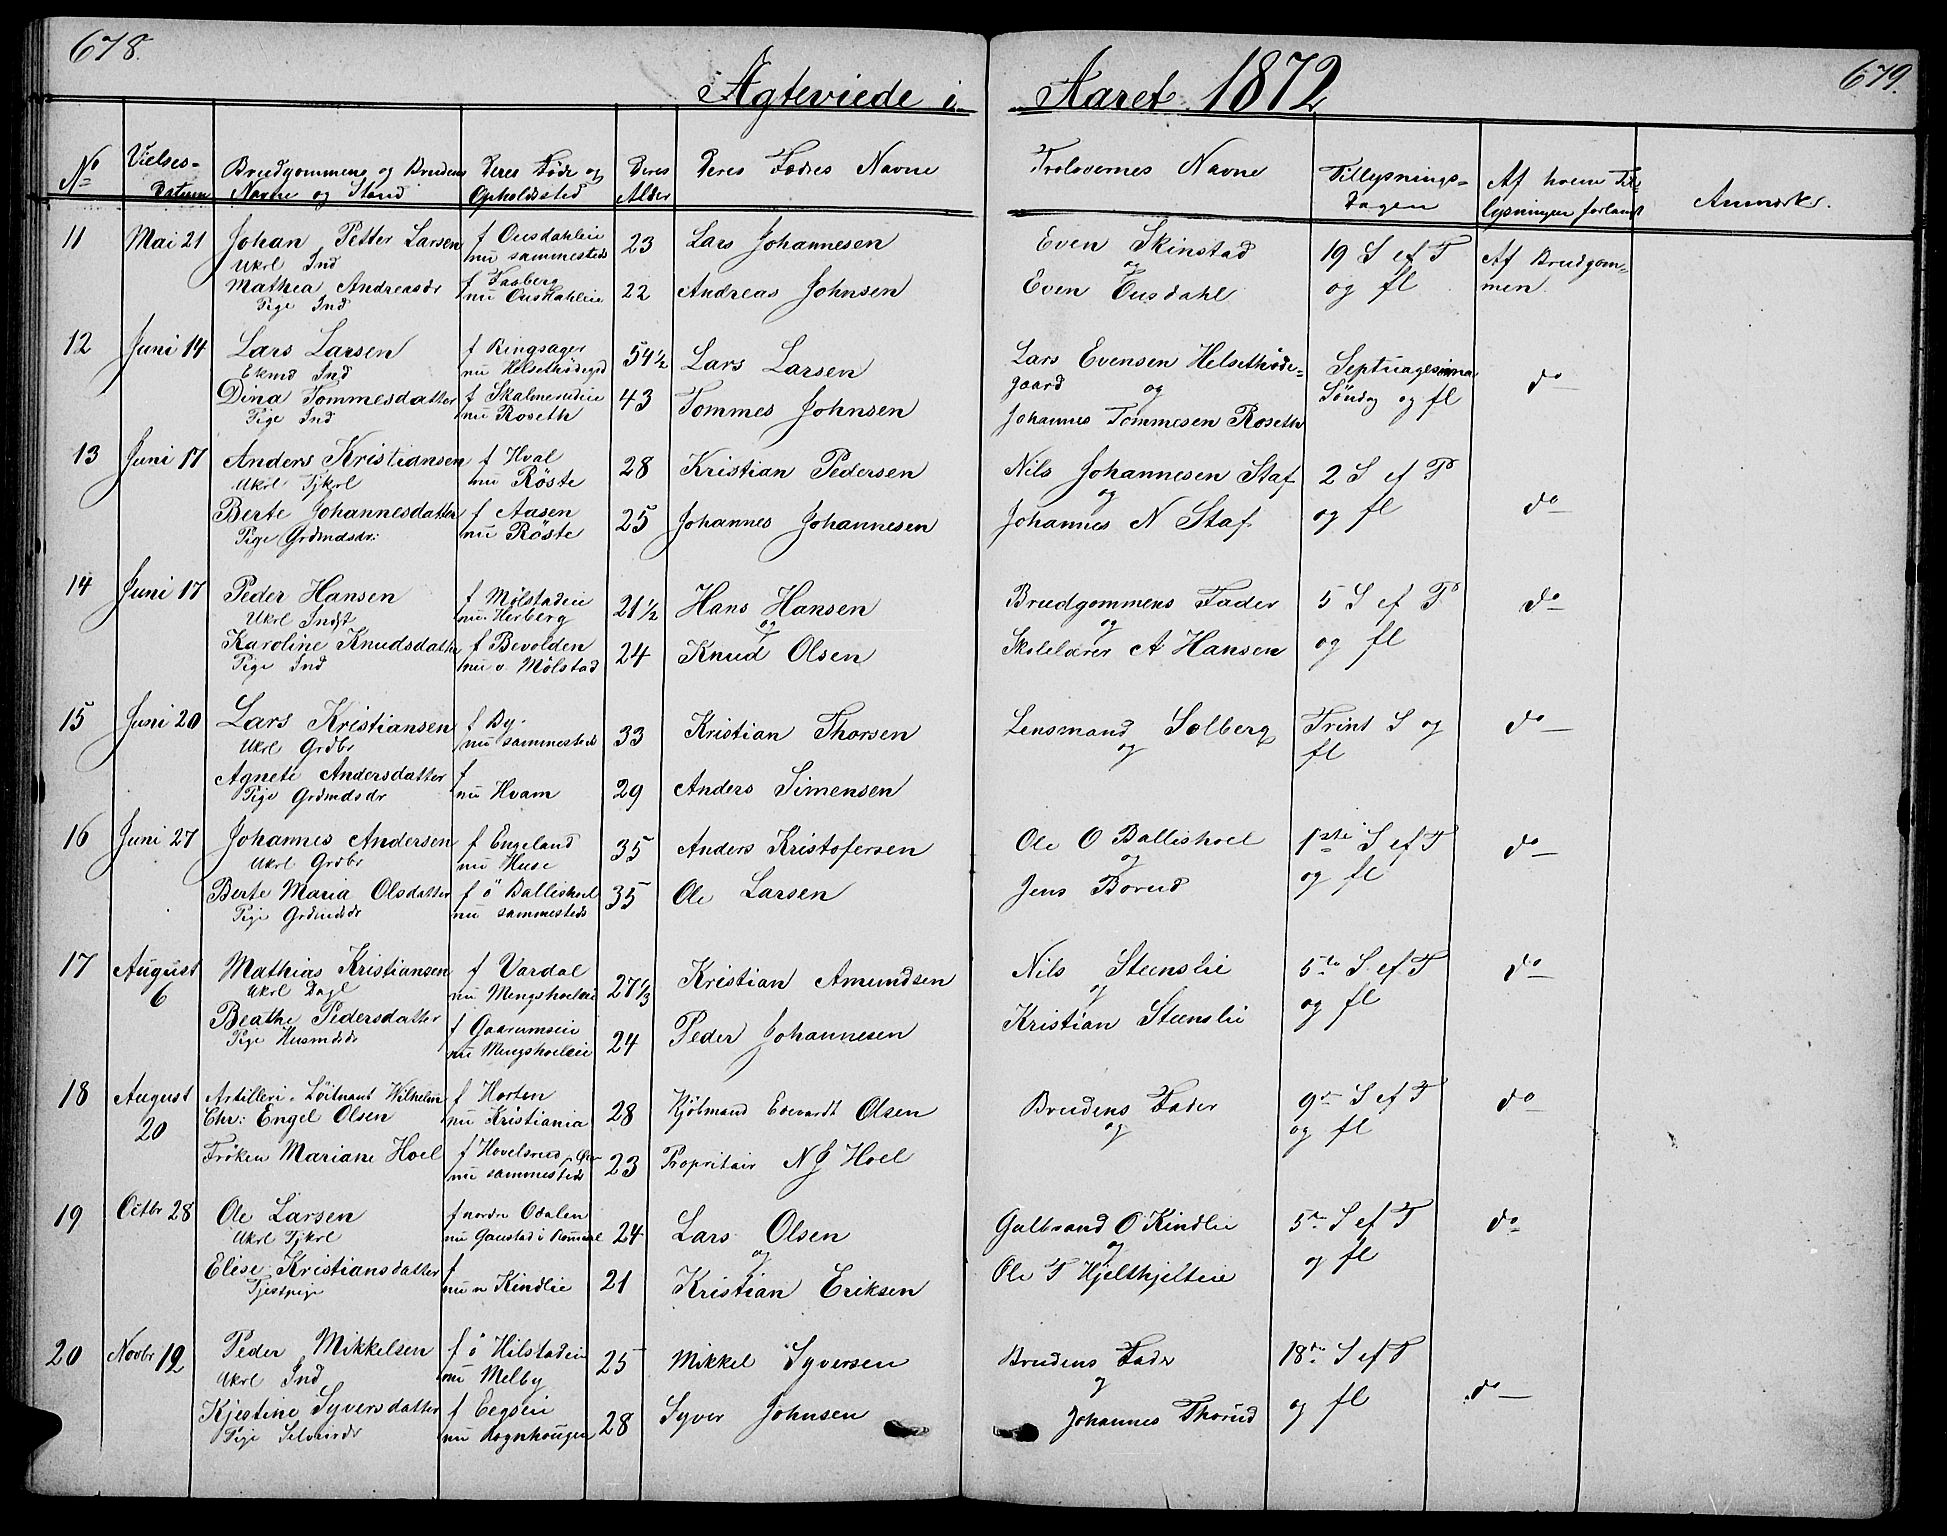 678.
679.
Ægteviede i Aaret 1872
No
Vielses-
Datum
Brudgommens og Brudens
Navne og Stand
Deres Føde og
Opholdssted
Deres
Alder
Deres Fædres Navne
Trolovernes Navne
Tillysnings-
Dagen
Af hvem Til
lysningen forlangt
Anmærkr.
11 Mai 21
Johan Petter Larsen
Ukrl Ind
f Ousdahleie
nu sammesteds
23
Lars Johannesen
Mathea Andreasdr
Pige Ind
f Faaberg
nu Ousdahleie
22
Andreas Johnsen
Even Skinstad
og
Even Ousdahl
19 S ef T
og fl
Af Brudgom-
men
12 Juni 14
Lars Larsen
Ekmd Ind
f Ringsager
nu Helsethødegd
54 1/2
Lars Larsen
Dina Tommesdatter
Pige Ind
f Skalmerudeie
nu Roseth
43
Tommes Johnsen
Lars Evensen Helsethøde-
gaard og
Johannes Tommesen Roseth
Septuagesima
Søndag og fl
do
13 Juni 17
Anders Kristiansen
Ukrl Tjkrl
f Hval
nu Røste
28
Kristian Pedersen
Berte Johannesdatter
Pige Grdmdsdr:
f Aasen
nu Røste
25
Johannes Johannesen
Nils Johannesen Staf
og
Johannes N Staf
2 S ef T
og fl
do
14 Juni 17
Peder Hansen
Ukrl Indst
f Mølstadeie
nu Herberg
21 1/2
Hans Hansen
og
Karoline Knudsdatter
Pige Ind
f Bevolden
nu v. Mølstad
24
Knud Olsen
Brudgommens Fader
og
Skolelærer A Hansen
5 S ef T
og fl
do
15 Juni 20
Lars Kristiansen
Ukrl Grdbr
f By
nu sammesteds
33
Kristian Thorsen
Agnete Andersdatter
Pige Grdmdsdr
f
nu Hvam
29
Anders Simensen
Lensmand Solberg
og
Trint S og
fl
do
16 Juni 27
Johannes Andersen
Ukrl Grdbr
f Engeland
nu Huse
35
Anders Kristofersen
Berte Maria Olsdatter
Pige Grdmdsdr
f ö Ballishoel
nu sammesteds
35
Ole Larsen
Ole O Ballishoel
og
Jens Borud
1ste S ef T
og fl
do
17 August
6
Mathias Kristiansen
Ukrl Dagl
f Vardal
nu Mengshoeleie
27 1/3
Kristian Amundsen
Beathe Pedersdatter
Pige Husmdsdr
f Gaarumseie
nu Mengshoeleie
24
Peder Johannesen
Nils Steenslie
og
Kristian Steenslie
5te S ef T
og fl
do
18 August
20
Artilleri-Löitnant Wilhelm
Chr: Engel Olsen
f Horten
nu Kristiania
28
Kjöbmand Edevardt Olsen
Frøken Mariane Hoel
f Hovelsrud
nu sammesteds
23
Propritair N J Hoel
Brudens Fader
og
9de S ef T
og fl
do
19 Octbr 28
Ole Larsen
Ukrl Tjkrl
f nordre Odalen
nu Gaustad i Romedal
24
Lars Olsen
og
Elise Kristiansdatter
Tjestpige
f
nu n Kindlie
21
Kristian Eriksen
Gulbrand O Kindlie
og
Ole T Hjelthjelteie
5te S ef T
og fl
do
20 Novbr 12
Peder Mikkelsen
Ukrl Ind
f ö Hilstadeie
nu Melby
25
Mikkel Syversen
Kjestine Syversdatter
Pige Selveierdr
f Eegseie
nu Rognhougen
28
Syver Johnsen
Brudens Fader
og
Johannes Thorud
18de S ef T
og fl
do